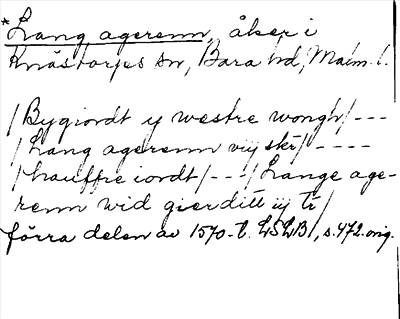 *Lang agerenn, åker i
Knästorps sn, Bara hd, Malm. l.
/Bygiordt y westre wongh/---
/Lang agerenn vij skr/----
/hauffre iordt/---/Lange age-
renn wid gierditt iij tr/
förra delen av 1570-t. LSLB1, s. 472. orig.